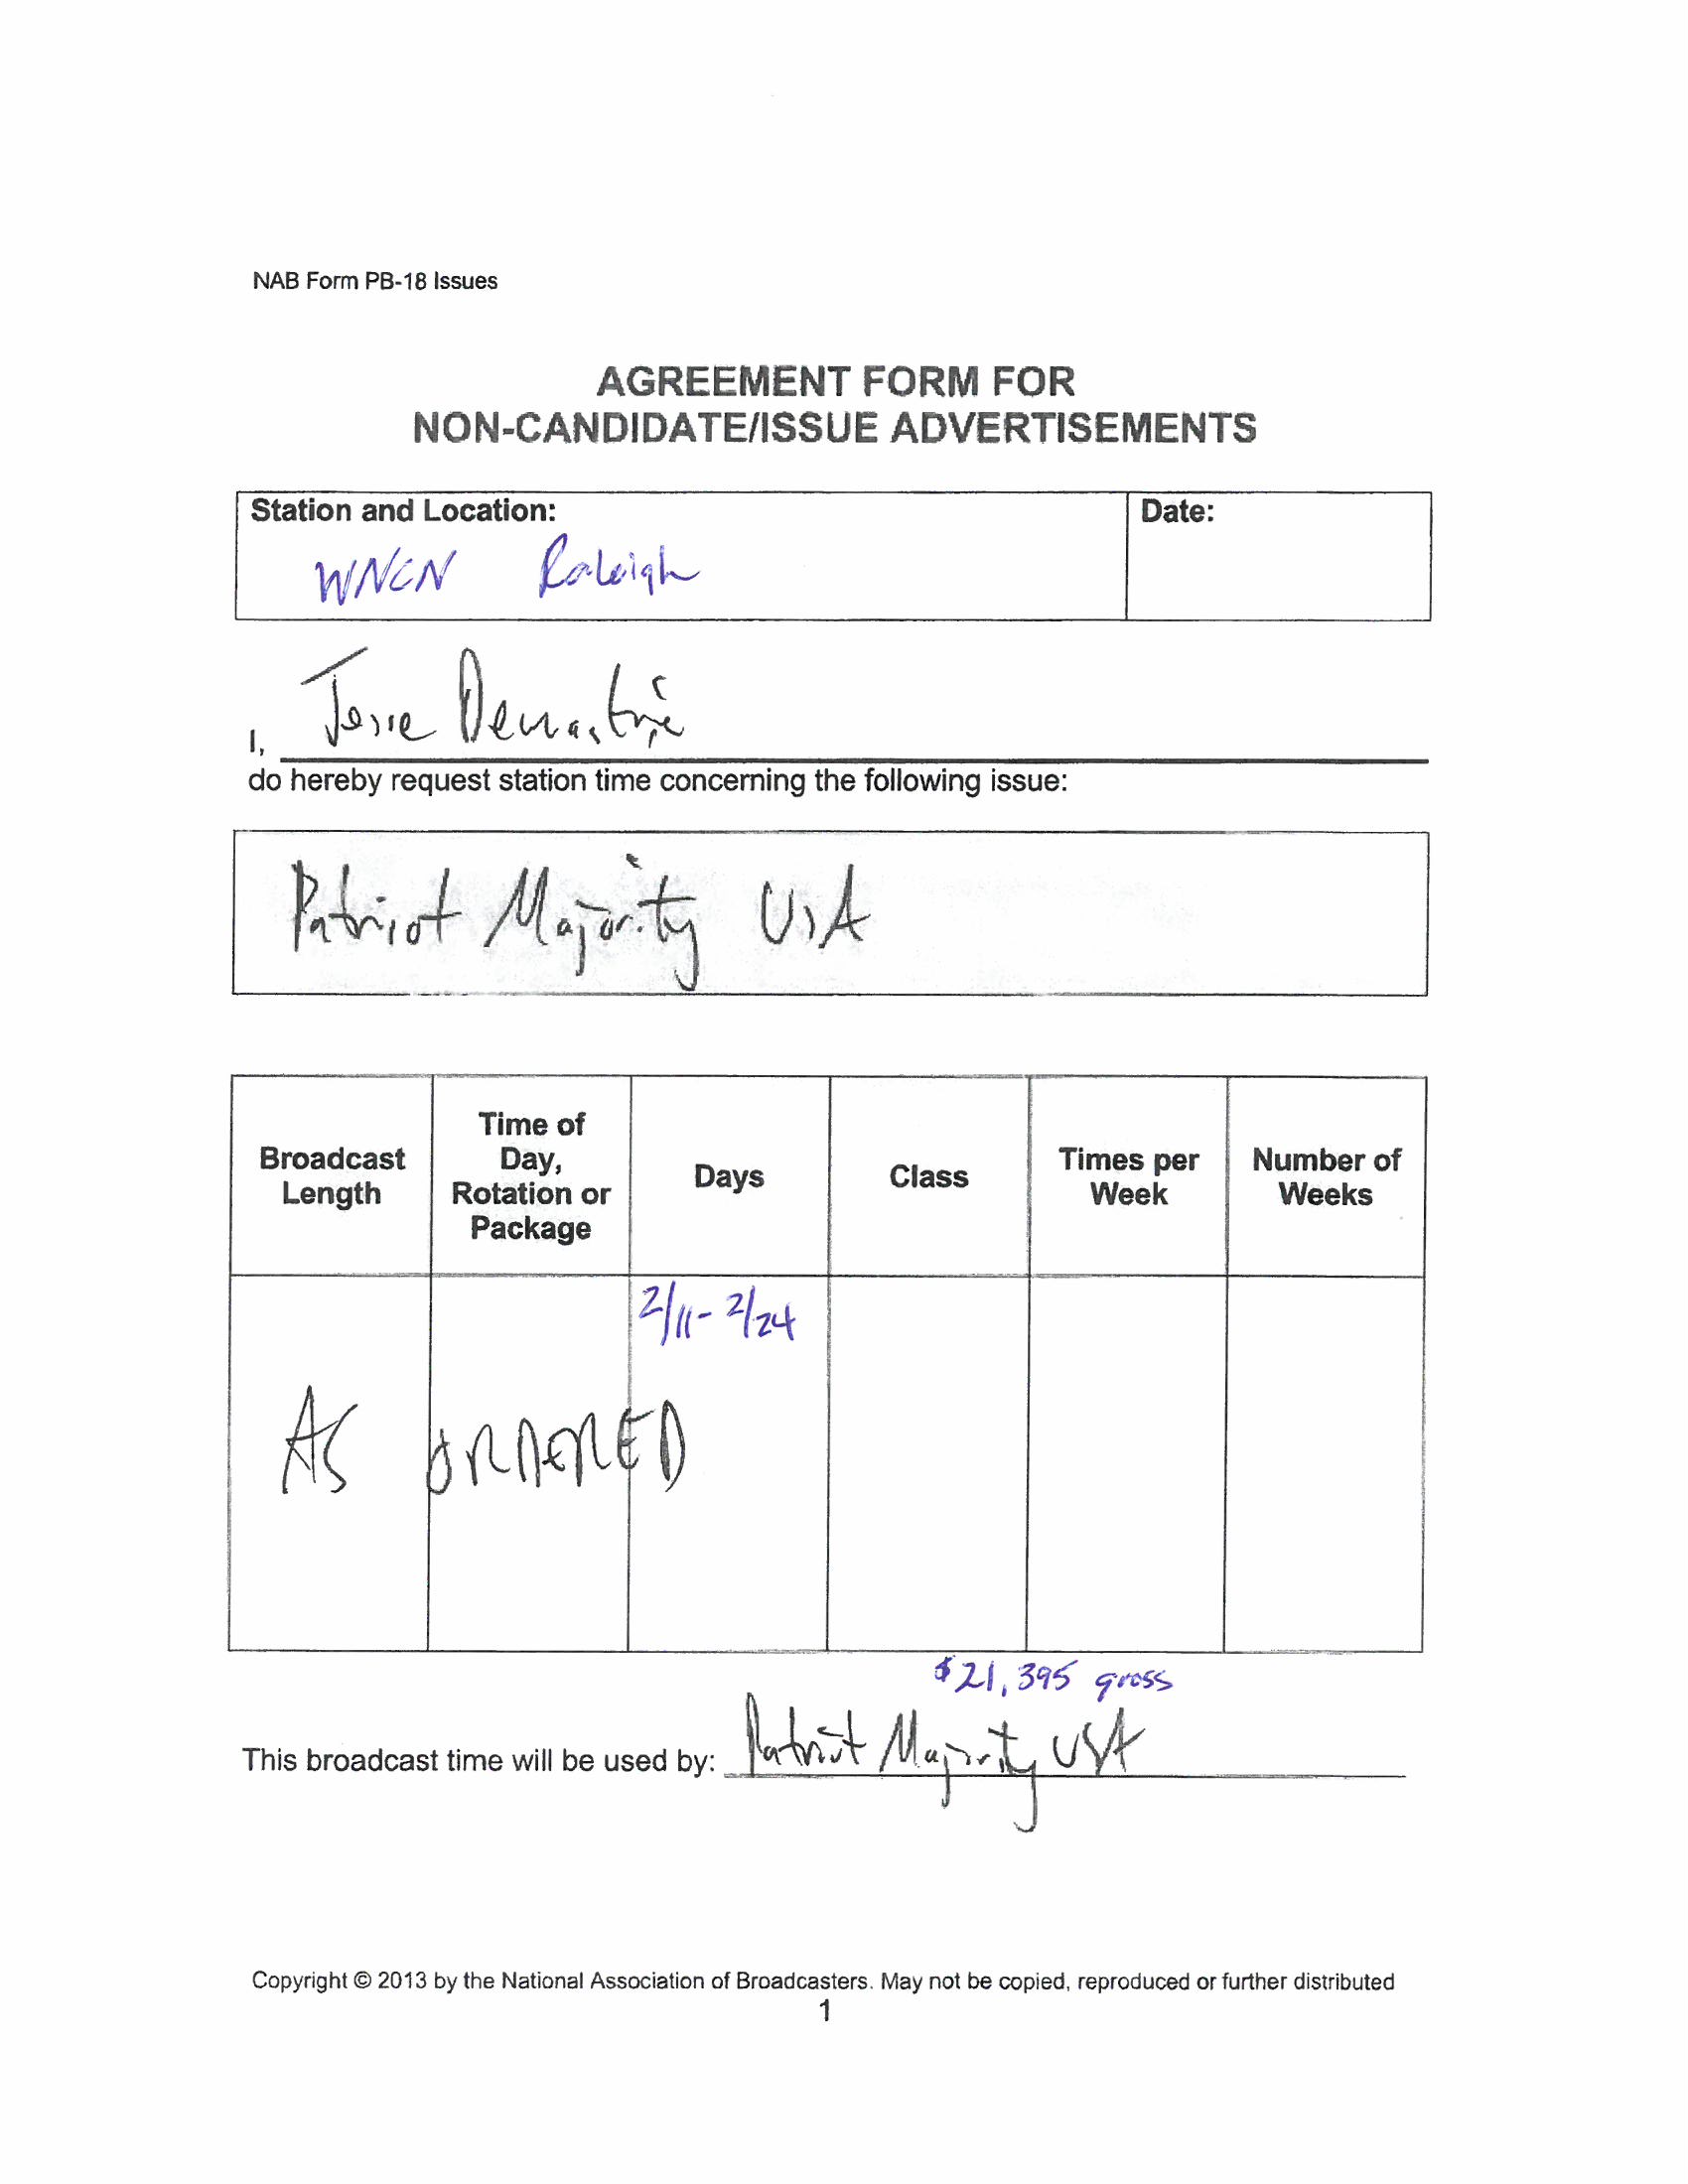 NAB Form PB-18 Issues
AGREEMENT FORM FOR
NON-CANDIDATE/ISSUE ADVERTISEMENTS
Station and Location:
Date:
WNCN Raleigh
Jesse Demastrie
I,
do hereby request station time concerning the following issue:
Patriot Majority USA
Broadcast Length
Time of Day, Rotation or Package
Days
Class
Times per Week
Number of Weeks
2/11 - 2/24
AS ORDERED
$21,395 gross
This broadcast time will be used by: Patriot Majority USA
Copyright © 2013 by the National Association of Broadcasters. May not be copied, reproduced or further distributed
1